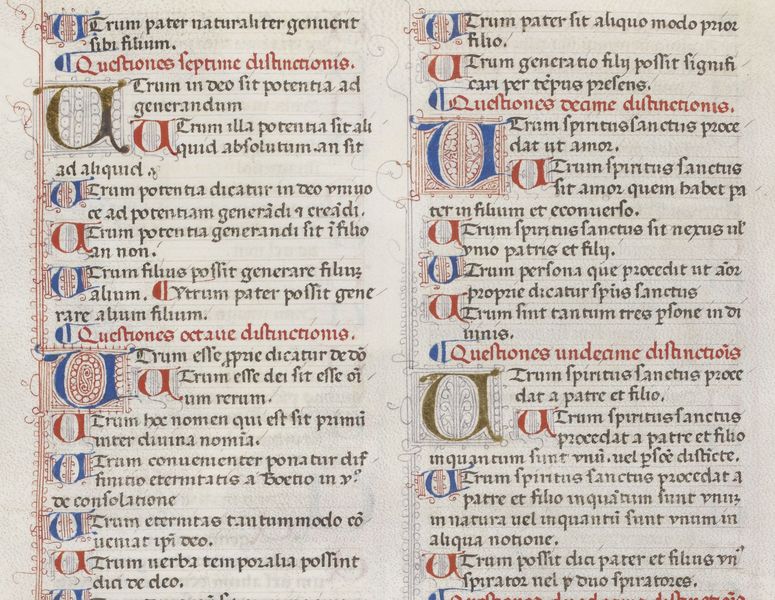 Utrum pater naturaliter genuerit
sibi filium.
¶ Questiones septime distinctionis.
Utrum in deo sit potentia ad
generandum
Utrum illa potentia sit ali
quid absolutum an sit
ad aliquid.
Utrum potentia dicatur in deo vniuo
ce ad potentiam generādi ⁊ creādi.
Utrum potentia generandi sit ī filio
an non.
Utrum filius possit generare filiuȝ
alium. ¶ Vtrum pater possit gene
rare alium filium.
¶ Questiones octaue distinctionis.
Utrum esse ꝓprie dicatur de dō
Utrum esse dei sit esse oī
um rerum.
Utrum hoc nomen qui est sit primū
inter diuina nomīa.
Utrum conuenienter ponatur dif
finitio eternitatis a Boetio in
de consolatione
Utrum eternitas tantummodo cō
ueniat ipī deo.
Utrum uerba temporalia possint
dici de deo.
Utrum pater sit aliquo modo prior
filio.
Utrum generatio filij possit signifi
cari per tēpus presens.
¶ Questiones decime distinctionis.
Utrum spiritus sanctus proce
dat ut amor.
Utrum spiritus sanctus
sit amor quem habet pa
ter in filium et econuerso.
Utrum spiritus sanctus sit nexus uł
vnio patris et filij.
Utrum persona que procedit ut aōr
proprie dicatur spūs sanctus
Utrum sint tantum tres ꝑsone in di
uinis.
¶ Questiones undecime distinctiōis
Utrum spiritus sanctus proce
dat a patre et filio.
Utrum spiritus sanctus
procedat a patre et filio
inquantum sunt vnū. uel disticte.
Utrum spiritus sanctus procedat a
patre et filio inquātum sunt vnuȝ
in natura uel inquantū sunt vnum in
aliqua notione.
Utrum possit dici pater et filius
spirator uel ꝑ duo spiratores.